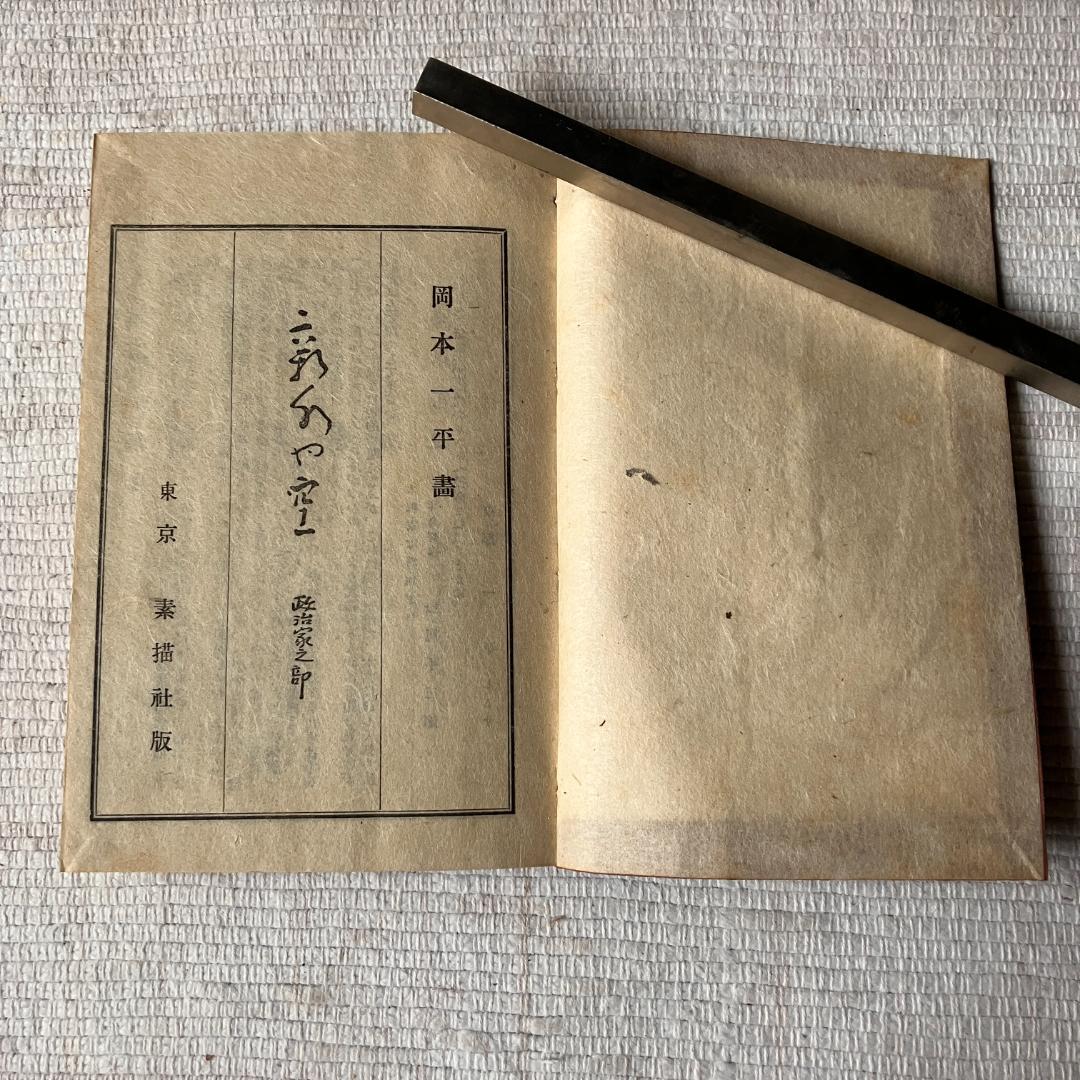 岡本一平畫
新水や空 政治家之部
東京 素描社版